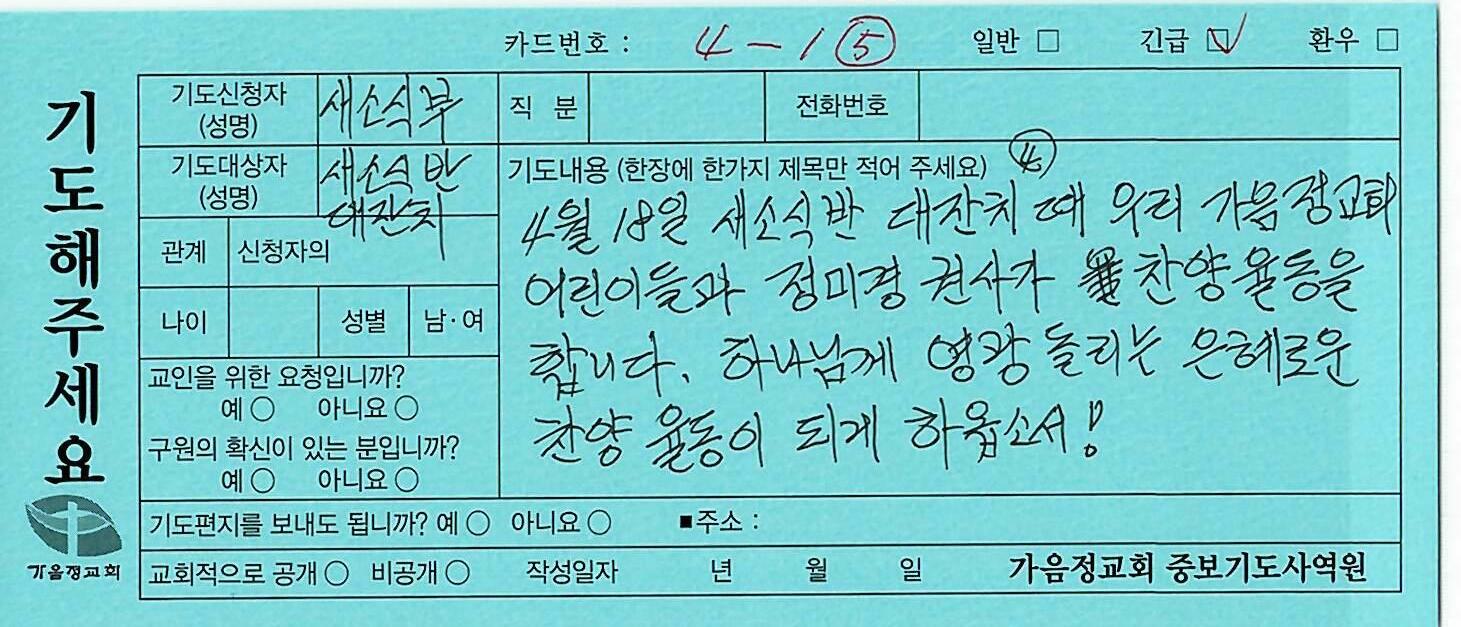 카드번호 : 4 - 1 ⑤ 일반 □ 긴급 ☑ 환우 □
기도해주세요
기도신청자 (성명) 새소식부 직 분 전화번호
기도대상자 (성명) 새소식반 대잔치
관계 신청자의
나이 성별 남·여
교인을 위한 요청입니까?
예 ○ 아니요 ○
구원의 확신이 있는 분입니까?
예 ○ 아니요 ○
기도내용 (한장에 한가지 제목만 적어 주세요) ④
4월 18일 새소식반 대잔치 때 우리 가음정교회
어린이들과 정미경 권사가 찬양율동을
합니다. 하나님께 영광 돌리는 은혜로운
찬양 율동이 되게 하옵소서!
기도편지를 보내도 됩니까? 예 ○ 아니요 ○ ■주소 :
교회적으로 공개 ○ 비공개 ○ 작성일자 년 월 일 가음정교회 중보기도사역원
가음정교회